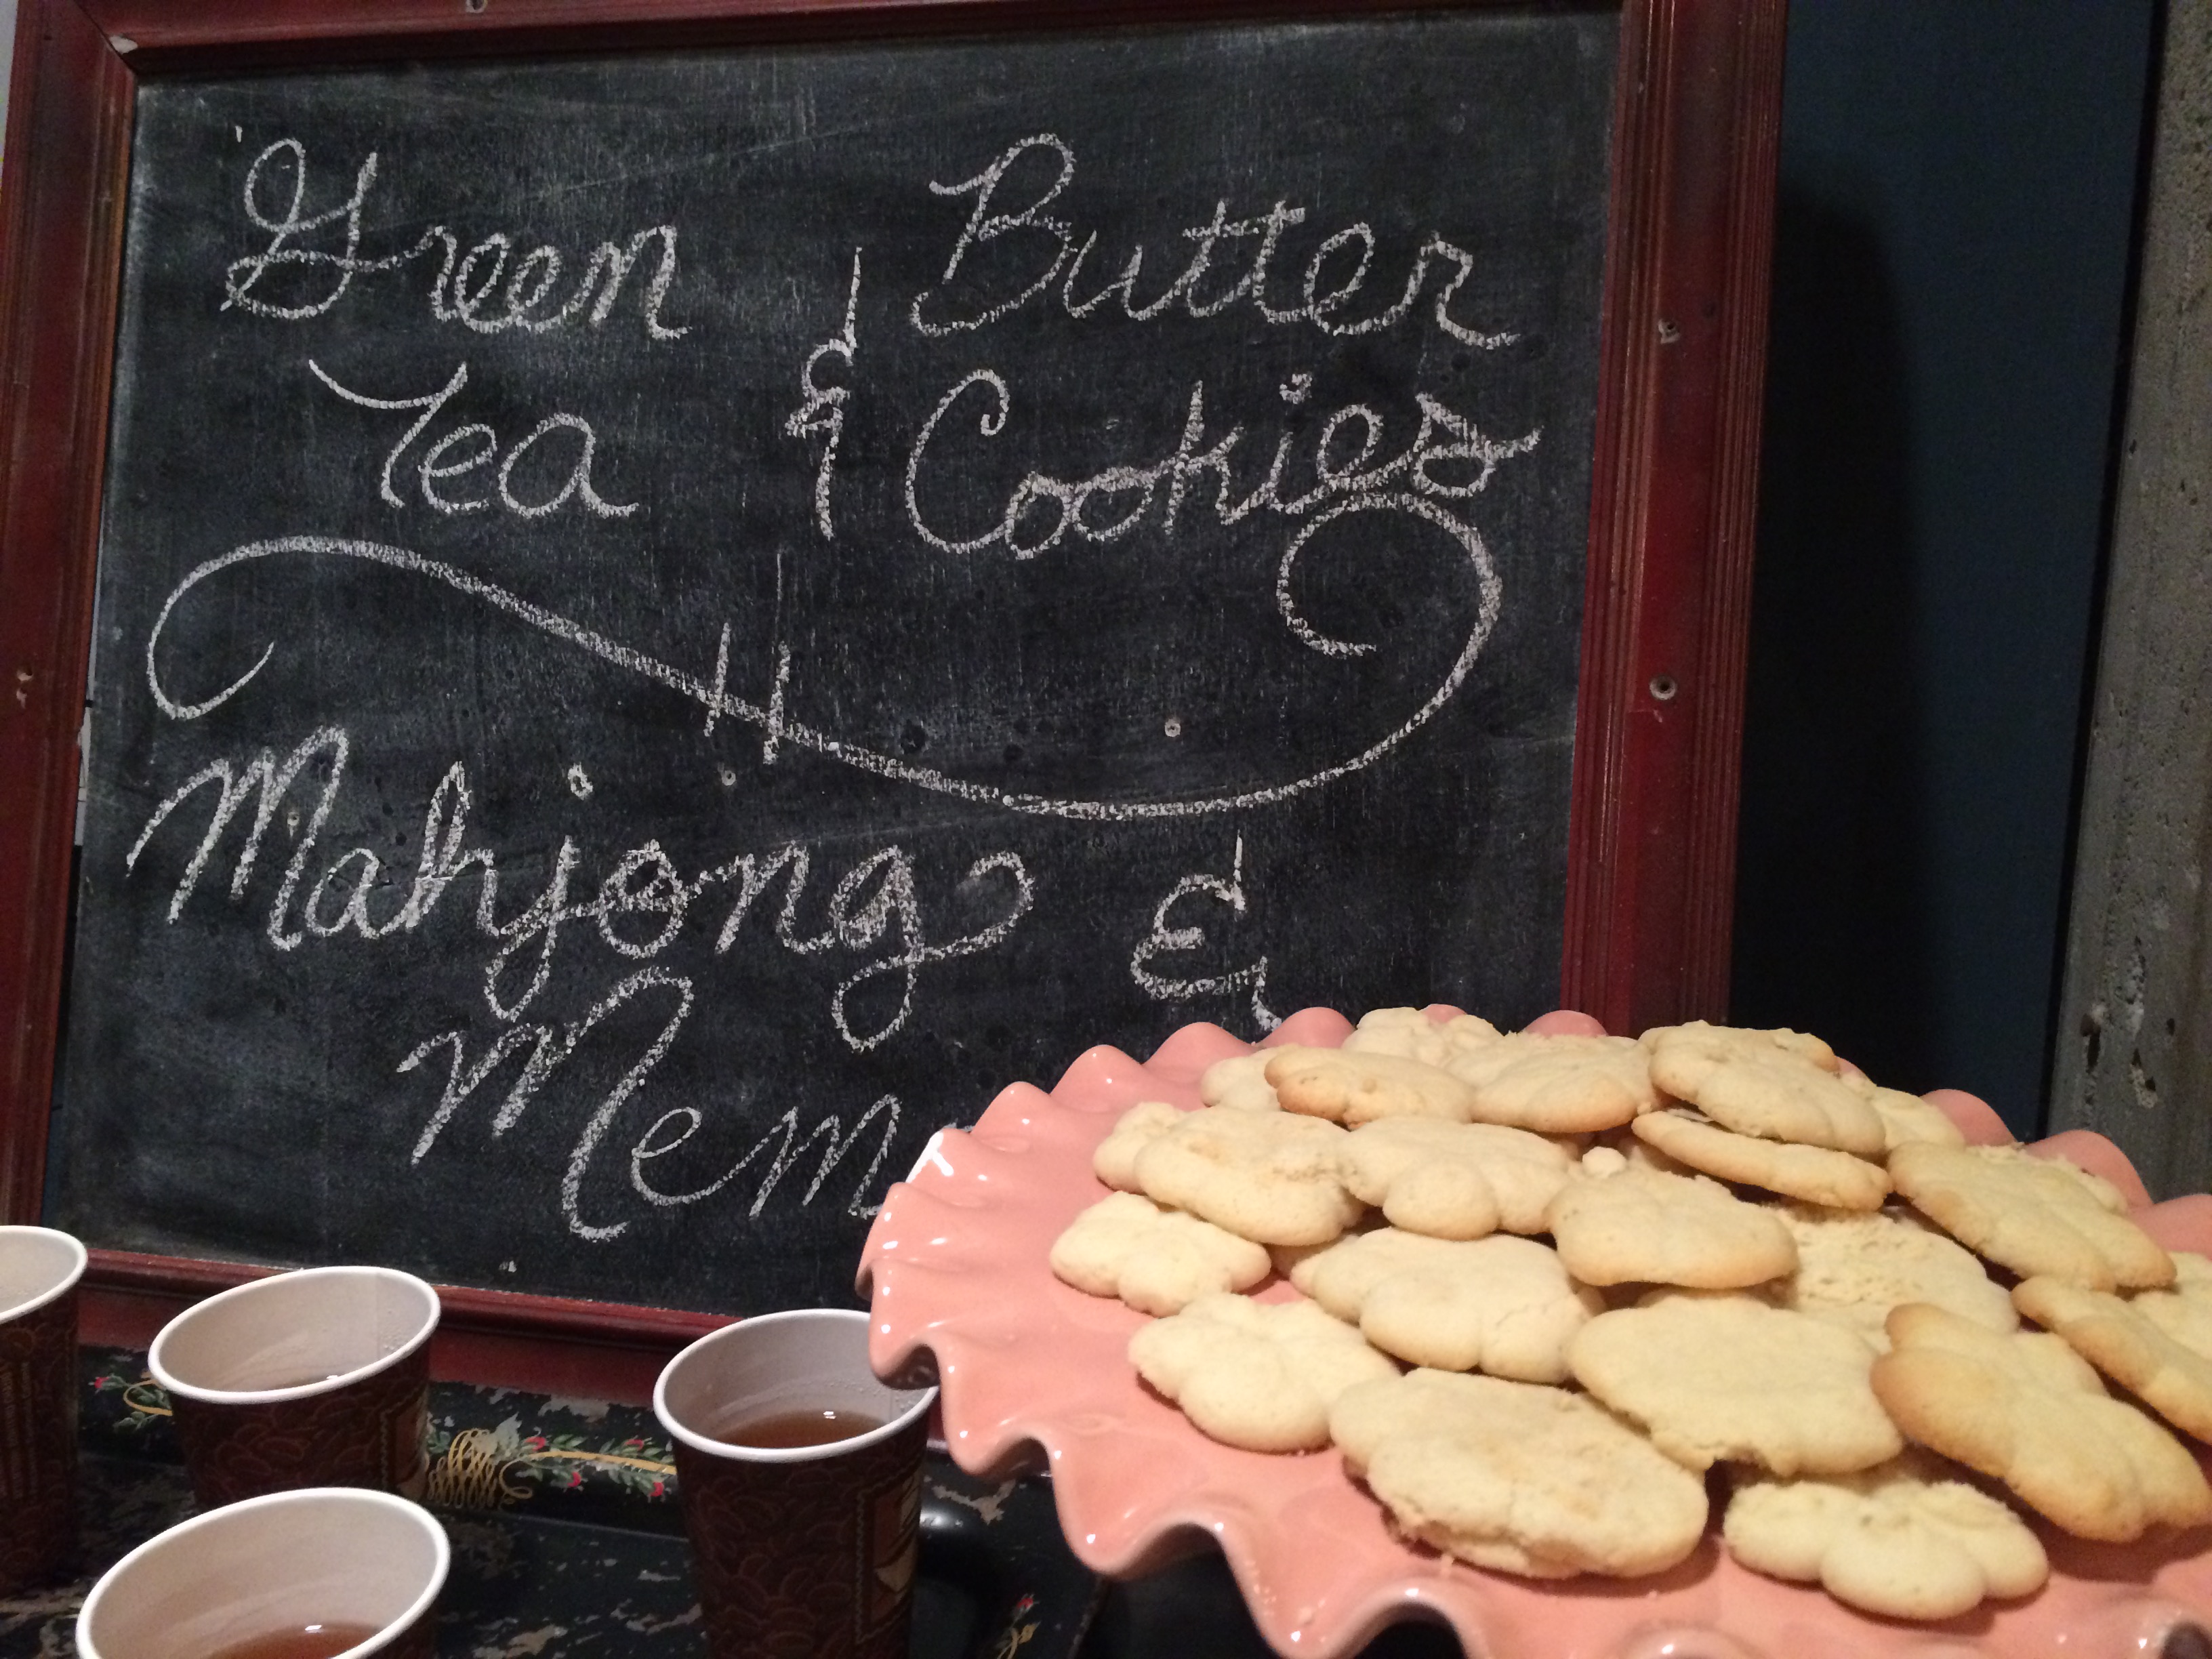 Green Butter
Tea & Cookies
Mahjong &
Mem